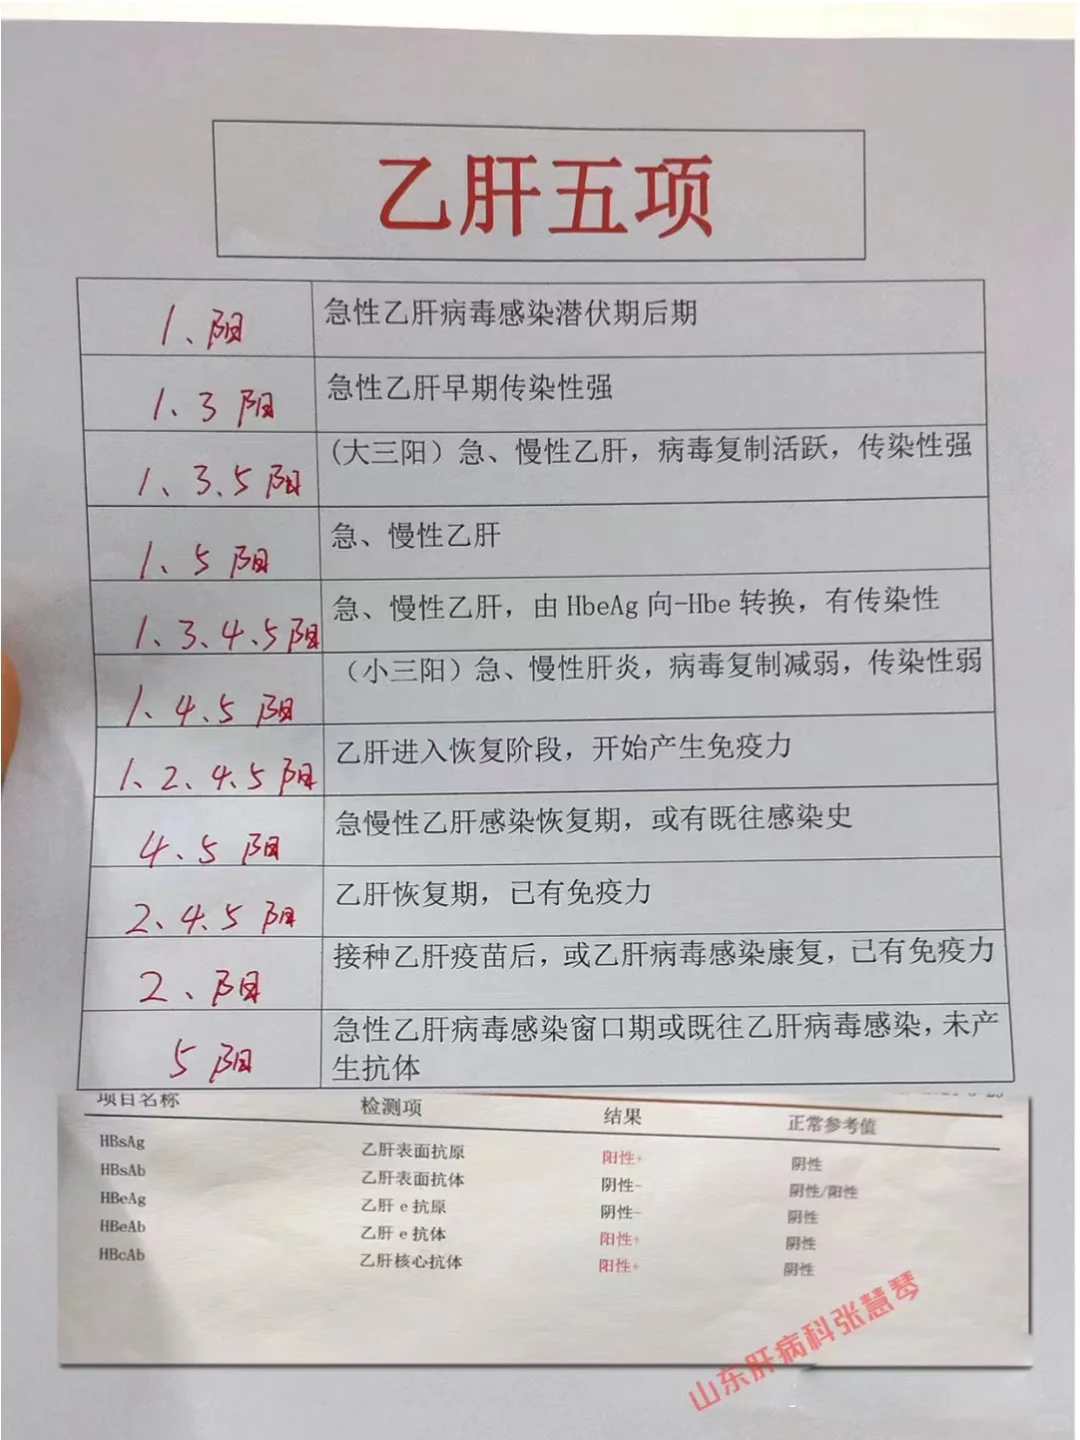 乙肝五项
1、阳 急性乙肝病毒感染潜伏期后期
1、3 阳 急性乙肝早期传染性强
1、3、5 阳 (大三阳）急、慢性乙肝，病毒复制活跃，传染性强
1、5 阳 急、慢性乙肝
1、3、4、5 阳 急、慢性乙肝，由 HbeAg 向-Hbe 转换，有传染性
1、4、5 阳 （小三阳）急、慢性肝炎，病毒复制减弱，传染性弱
1、2、4、5 阳 乙肝进入恢复阶段，开始产生免疫力
4、5 阳 急慢性乙肝感染恢复期，或有既往感染史
2、4、5 阳 乙肝恢复期，已有免疫力
2、阳 接种乙肝疫苗后，或乙肝病毒感染康复，已有免疫力
5 阳 急性乙肝病毒感染窗口期或既往乙肝病毒感染，未产
生抗体
项目名称 检测项 结果 正常参考值
HBsAg 乙肝表面抗原 阳性+ 阴性
HBsAb 乙肝表面抗体 阴性- 阴性/阳性
HBeAg 乙肝 e 抗原 阴性- 阴性
HBeAb 乙肝 e 抗体 阳性+ 阴性
HBcAb 乙肝核心抗体 阳性+ 阴性
山东肝病科张慧琴